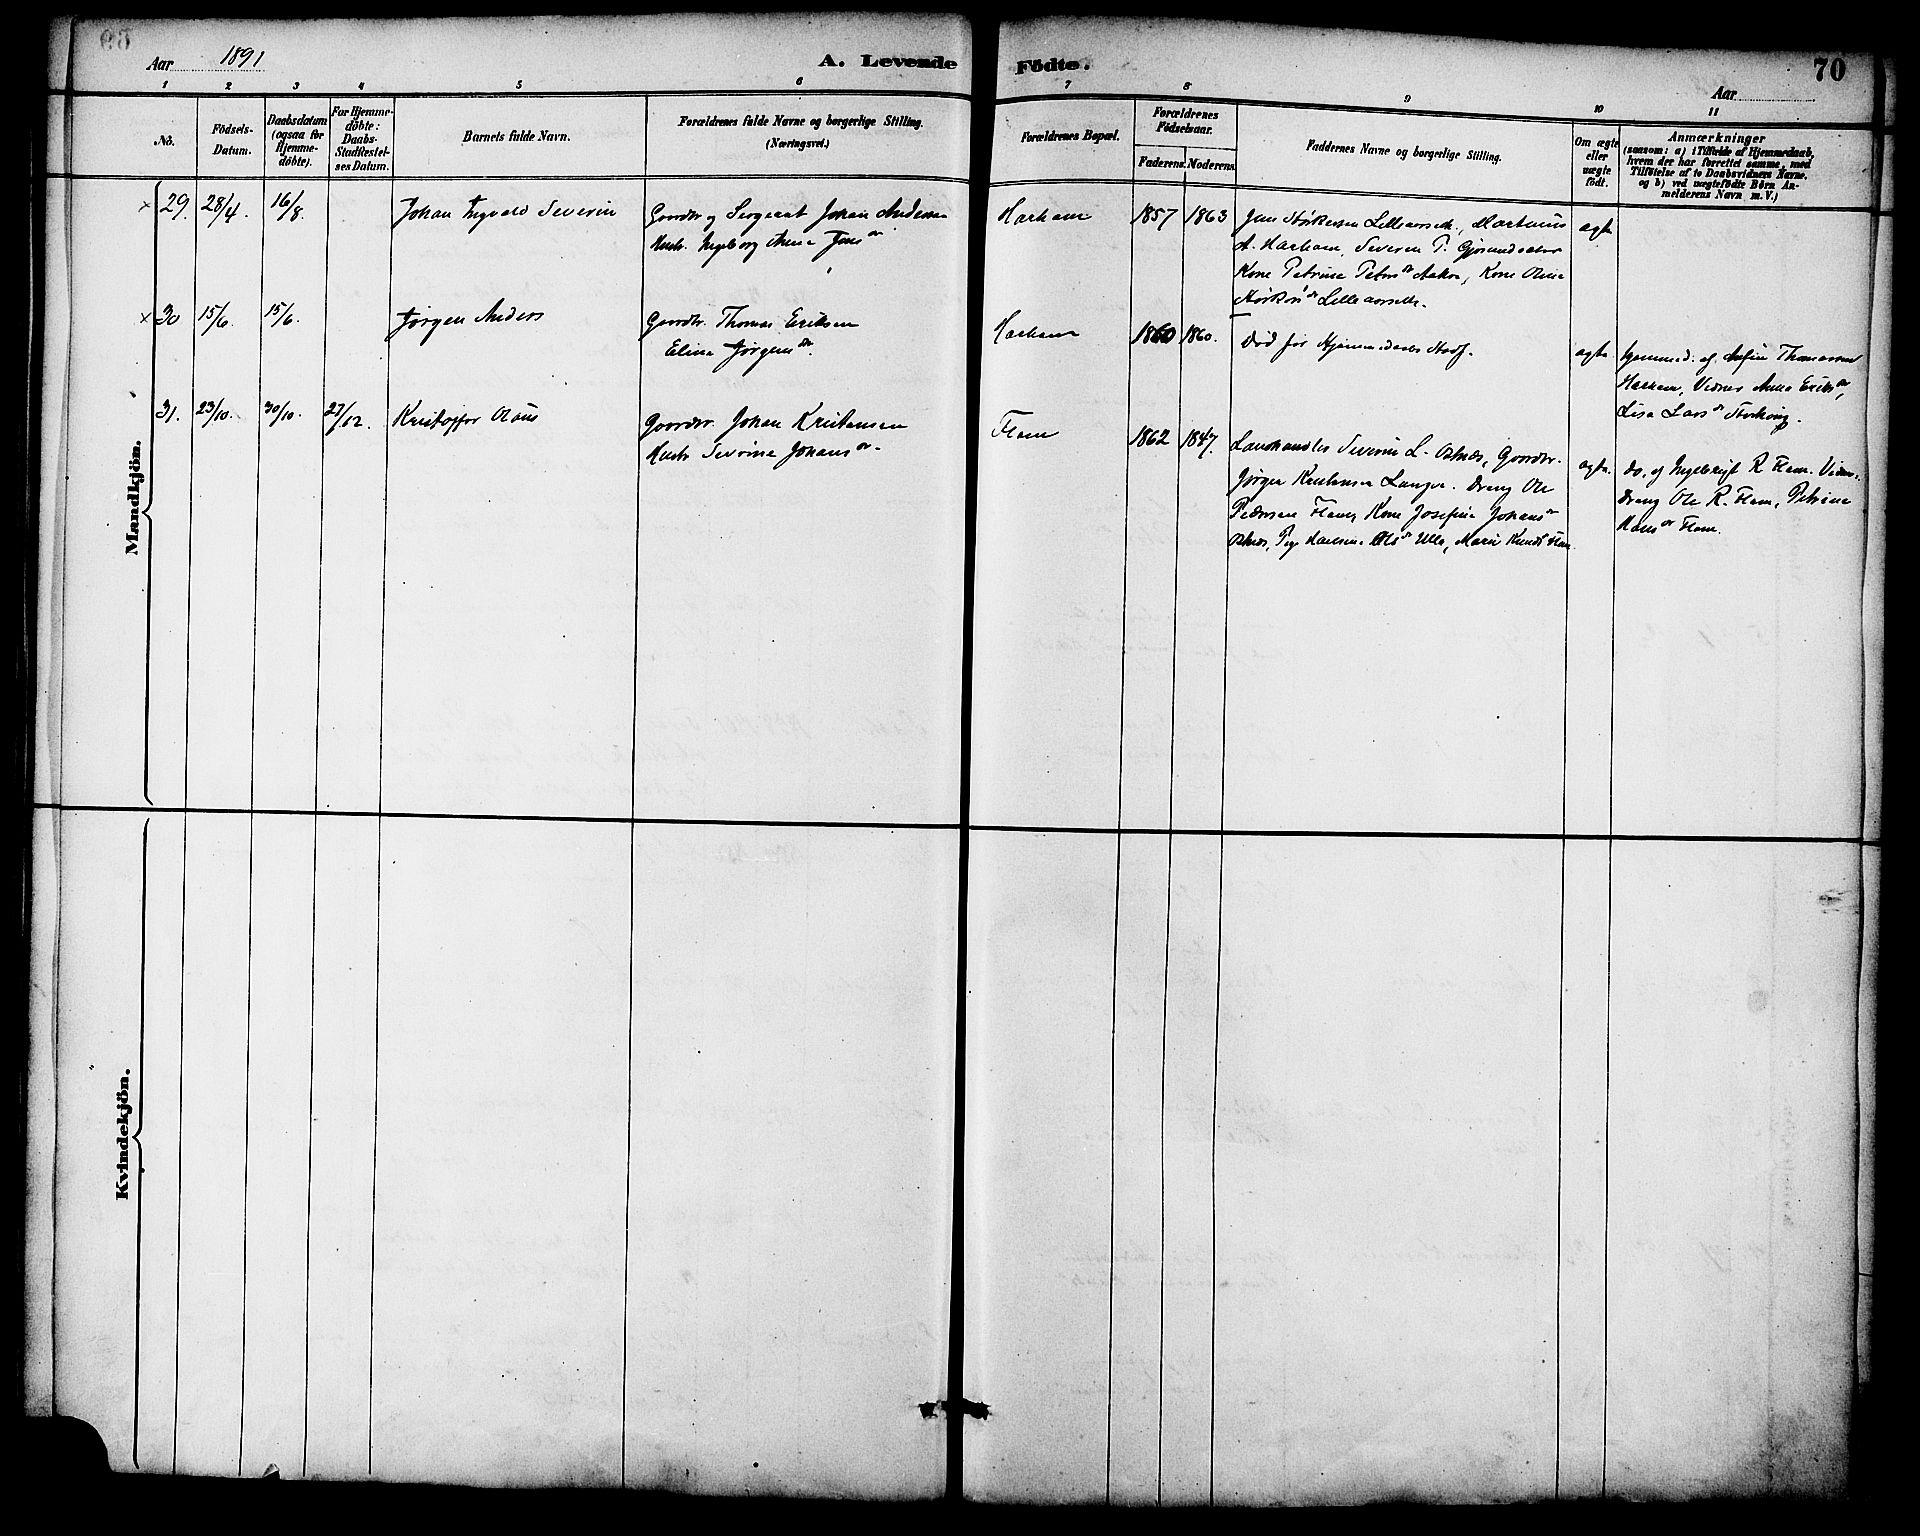 Aar 1891
A. Levende
Födte.
70
Aar
1 2 3 4 5 6 7 8 9 10 11
No.
Födsels-
Datum.
Daabsdatum
(ogsaa for
Hjemme-
döbte).
For Hjemme-
döbte:
Daabs-
Stadfæstel-
ses Datum.
Barnets fulde Navn.
Forældrenes fulde Navne og borgerlige Stilling.
(Næringsvei.)
Forældrenes Bopæl.
Forældrenes
Födselsaar.
Faderens. Moderens.
Faddernes Navne og borgerlige Stilling.
Om ægte
eller
uægte
födt.
Anmærkninger
(saasom: a) i Tilfælde af Hjemmedaab,
hvem der har forrettet samme, med
Tilföielse af to Daabsvidners Navne.
og b) ved uægtefödte Börn An-
melderens Navn m. V.)
Mandkjön.
× 29. 28/4. 16/8.
Johan Ingvald Severin
Gaardbr. og Sergeant Johan Andersen
Hustr. Ingeborg Anna Jens dr
Harham
1857 1863
Jens Lilleaarseth, Martinus
A. Harham, Severin P.
Kone Petrine Peters dr Aakre, Kone Oline
dr Lilleaarseth.
ægte
× 30 15/6. 15/6.
Jørgen Anders
Gaardbr. Thomas Eriksen
Eline Jørgens dr.
Harham
1860 1860.
Død før Hjemmedaabs Stadf.
ægte.
hjemmed. af Thomassen
Harham, Vidner Anna Eriks dr,
Lisa Lars dr
31. 23/10. 30/10. 27/12.
Kristoffer Olaus
Gaardbr. Johan Kristensen
Hustr. Sevrine Johans dr.
Flem
1862 1847.
Landhandler Severin L. Østnes, Gaardbr.
Jørgen Kristensen Longva. Dreng Ole
Pedersen Flem, Kone Josefine Johans dr
Østnes, Pige Ols dr Ulla, Marie Knuds Flem
ægte.
do. af Ingebrigt R. Flem. Vidner
Dreng Ole R. Flem, Petrine
Hans dr Flem.
Kvindekjön.